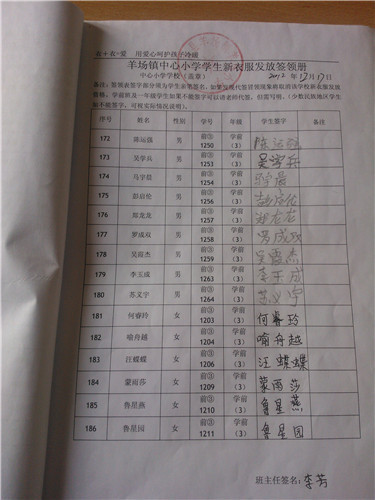 衣+衣=爱 用爱心呵护孩子冷暖
羊场镇中心小学学生新衣服发放签领册
中心小学学校(盖章) 2012年12月17日
序号 姓名 性别 学号 年级 学生签字 备注
172 陈运强 男 前③1250 学前(3) 陈运强
173 吴学兵 男 前③1253 学前(3) 吴学兵
174 马宇晨 男 前③1254 学前(3)
175 彭启伦 男 前③1256 学前(3) 彭启伦
176 郑龙龙 男 前③1257 学前(3) 郑龙龙
177 罗成双 男 前③1258 学前(3) 罗成双
178 男 前③1259 学前(3)
179 李玉成 男 前③1263 学前(3) 李玉成
180 苏义宇 男 前③1264 学前(3) 苏义宇
181 何睿玲 女 前③1203 学前(3) 何睿玲
182 喻舟越 女 前③1204 学前(3) 喻舟越
183 汪蝶蝶 女 前③1206 学前(3) 汪蝶蝶
184 蒙雨莎 女 前③1209 学前(3) 蒙雨莎
185 鲁星燕 女 前③1210 学前(3) 鲁星燕
186 鲁星园 女 前③1211 学前(3) 鲁星园
班主任签名:李芳